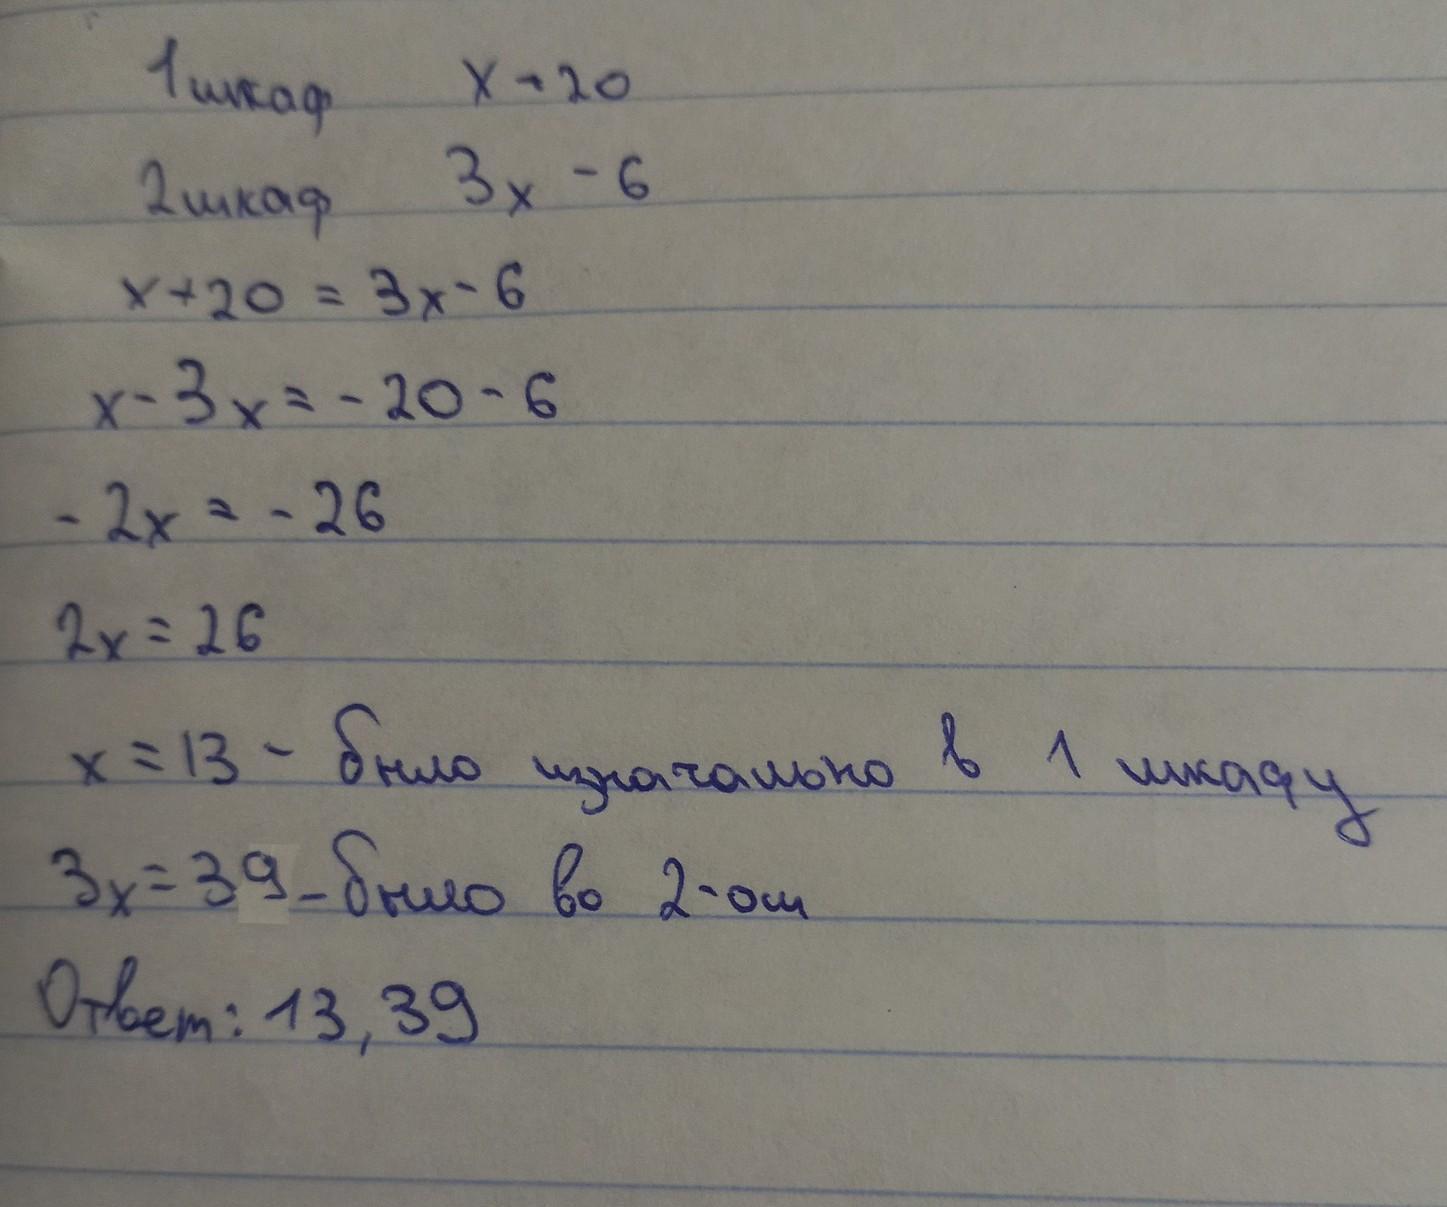 1 шкаф x+20
2 шкаф 3x - 6
x+20 = 3x - 6
x - 3x = - 20 - 6
- 2x = - 26
2x = 26
x = 13 - было изначально в 1 шкафу
3x = 39 - было во 2-ом
Ответ: 13, 39